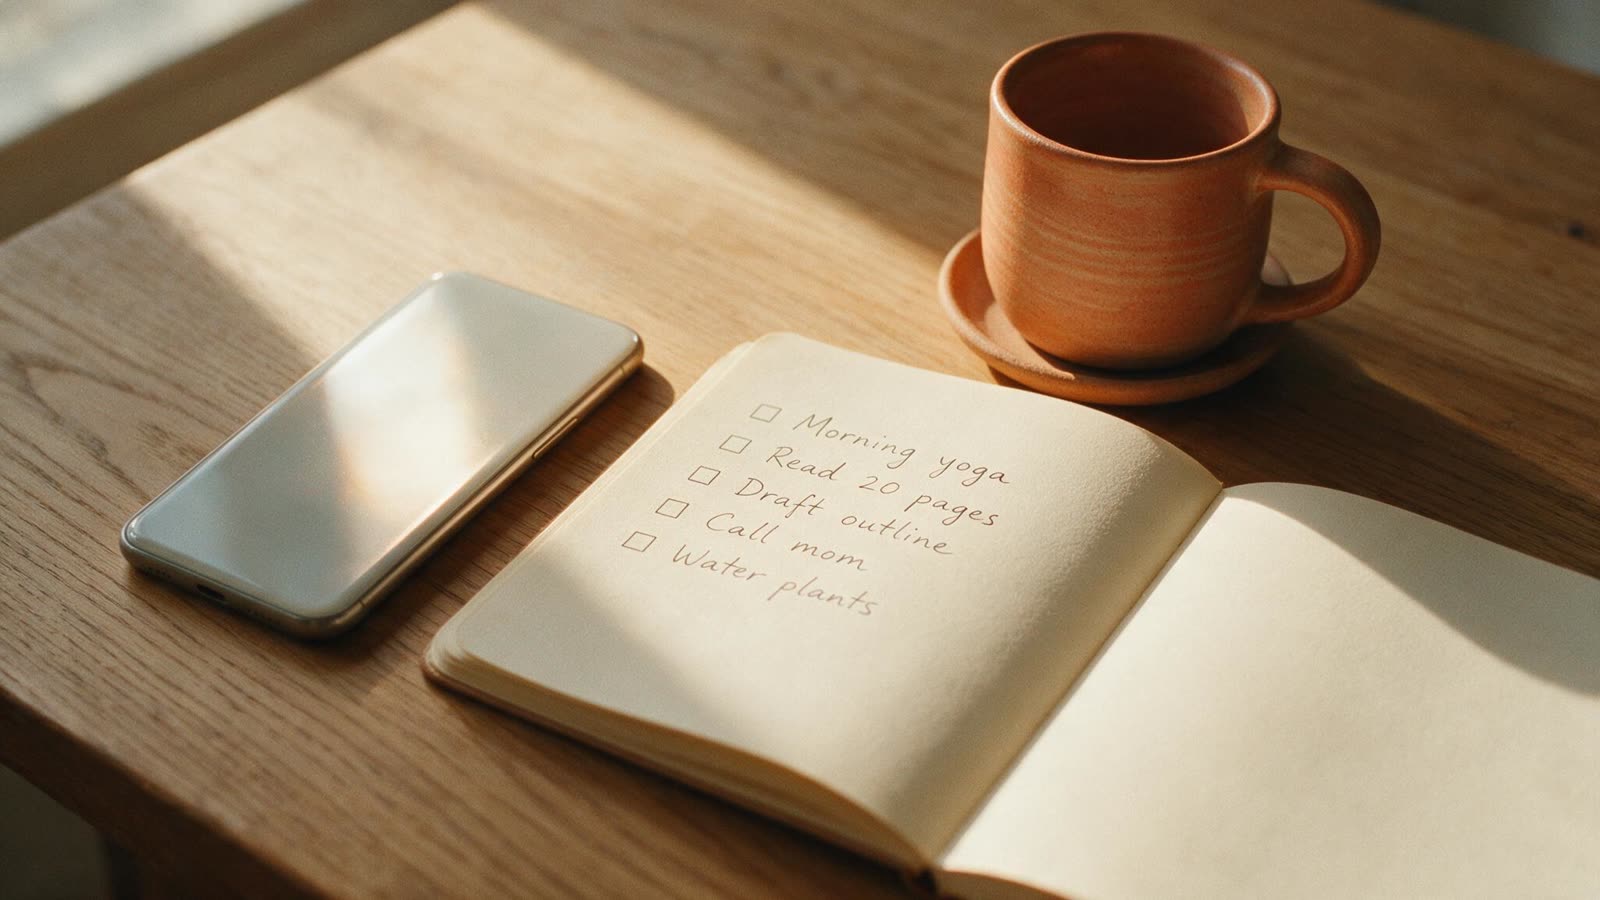 ☐ Morning yoga
☐ Read 20 pages
☐ Draft outline
☐ Call mom
☐ Water plants